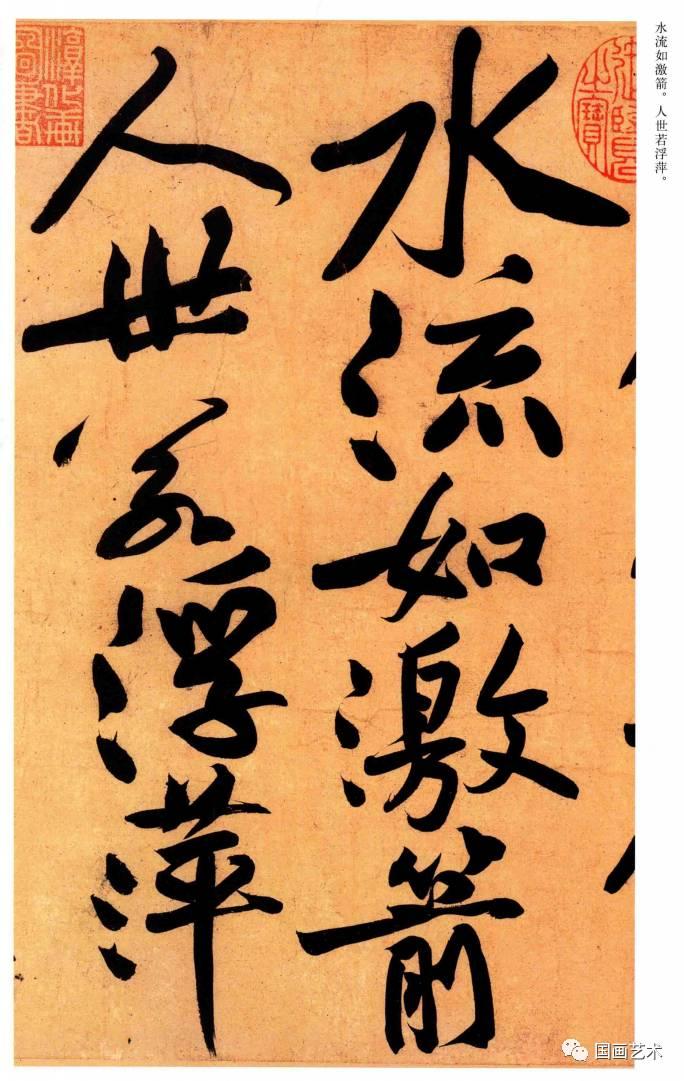 水流如激箭。人世若浮萍。
水流如激箭
人世若浮萍
国画艺术